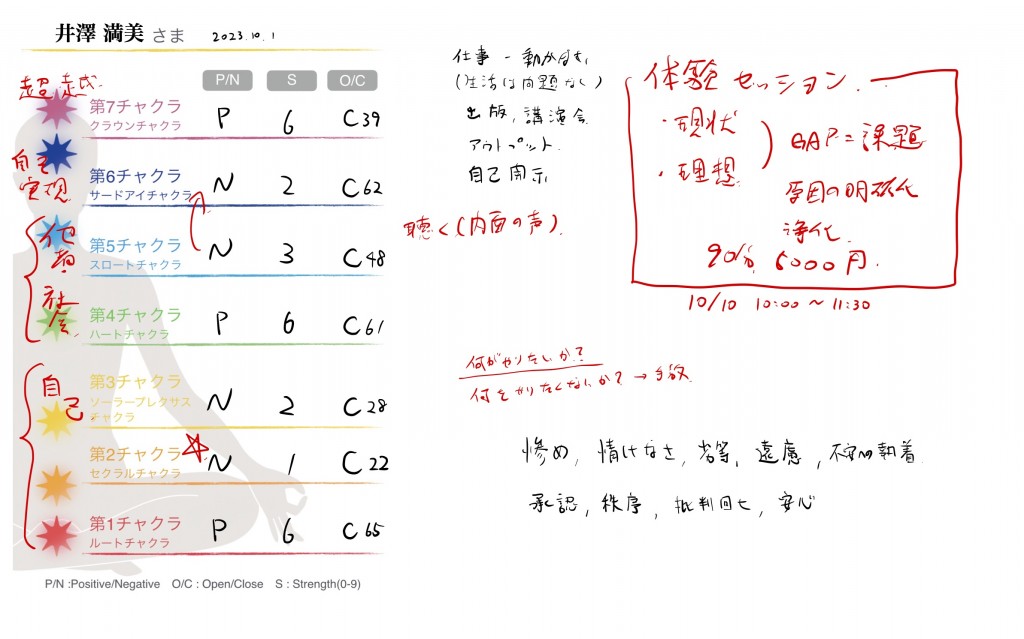 井澤 満美 さま 2023.10.1
P/N S O/C
超意識
第7チャクラ
クラウンチャクラ
P 6 C39
自己実現
第6チャクラ
サードアイチャクラ
N 2 C62
他者 社会
第5チャクラ
スロートチャクラ
N 3 C48
第4チャクラ
ハートチャクラ
P 6 C61
自己
第3チャクラ
ソーラープレクサス
チャクラ
N 2 C28
第2チャクラ
セクラルチャクラ
N 1 C22
第1チャクラ
ルートチャクラ
P 6 C65
P/N :Positive/Negative O/C : Open/Close S : Strength(0-9)
仕事 -
(生活は問題なし)
出版, 講演会
アウトプット
自己開示
聴く(内面の声)
体験セッション
・現状
・理想
GAP=課題
原因の明確化
浄化
90分 5000円
10/10 10:00〜11:30
何がやりたいか?
何をやりたくないか? → 手放
惨め, 情けなさ, 劣等, 遠慮, 不安の執着
承認, 秩序, 批判回せ, 安心